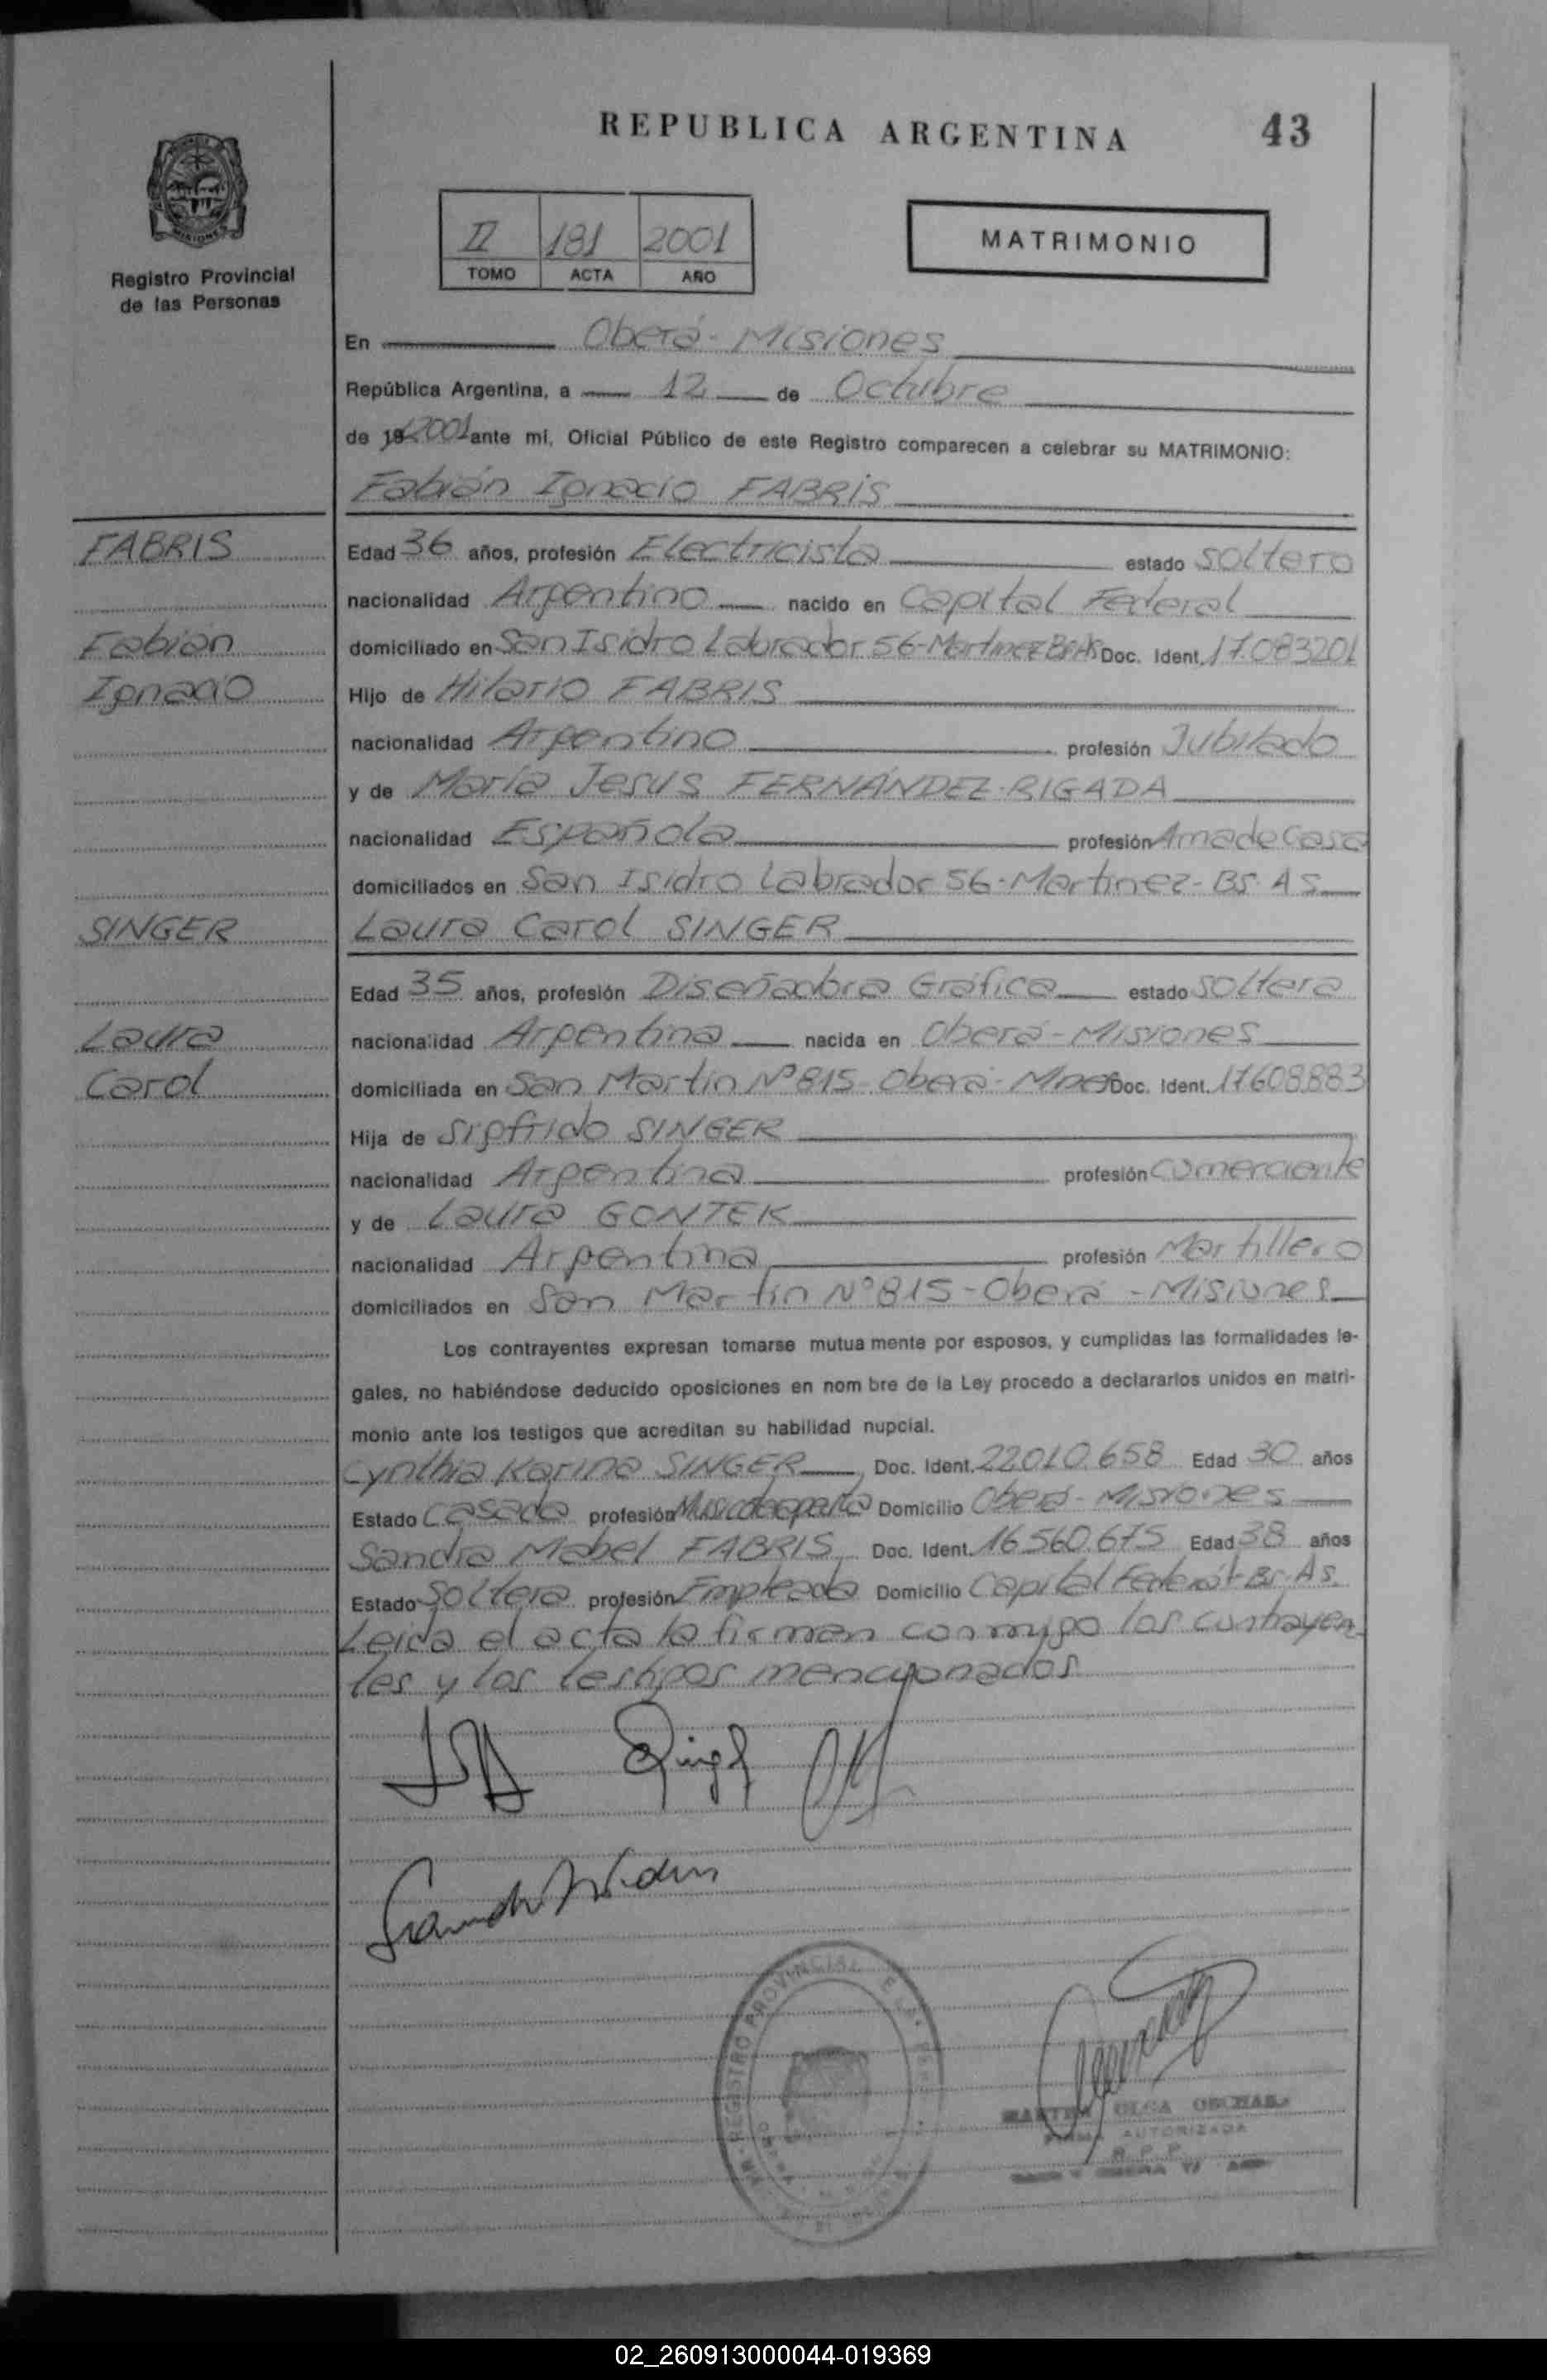 REPUBLICA ARGENTINA 43
MISIONES
Registro Provincial
de las Personas
II 181 2001
TOMO ACTA AÑO
MATRIMONIO
En Oberá - Misiones
República Argentina, a 12 de Octubre
de 19 2001 ante mi, Oficial Público de este Registro comparecen a celebrar su MATRIMONIO:
Fabián Ignacio FABRIS
FABRIS Edad 36 años, profesión Electricista estado soltero
nacionalidad Argentino nacido en Capital Federal
Fabian domiciliado en San Isidro Labrador 56-Martinez Bs As Doc. Ident. 17.083201
Ignacio Hijo de Hilario FABRIS
nacionalidad Argentino profesión Jubilado
y de María Jesus FERNÁNDEZ-RIGADA
nacionalidad Española profesión Ama de Casa
domiciliados en San Isidro Labrador 56-Martinez-BS. AS
SINGER Laura Carol SINGER
Edad 35 años, profesión Diseñadora Gráfica estado soltera
Laura nacionalidad Argentina nacida en Oberá-Misiones
Carol domiciliada en San Martin Nº 815-Oberá- Mnes Doc. Ident. 17608883
Hija de Sigfrido SINGER
nacionalidad Argentina profesión comerciante
y de Laura GONTEK
nacionalidad Argentina profesión Martillero
domiciliados en San Martín Nº 815-Oberá-Misiones
Los contrayentes expresan tomarse mutua mente por esposos, y cumplidas las formalidades le-
gales, no habiéndose deducido oposiciones en nom bre de la Ley procedo a declararlos unidos en matri-
monio ante los testigos que acreditan su habilidad nupcial.
Cynthia Karina SINGER, Doc. Ident. 22010.658 Edad 30 años
Estado Casada profesión Domicilio Oberá-Misiones
Sandra Mabel FABRIS, Doc. Ident. 16560.675 Edad 38 años
Estado Soltera profesión Empleada Domicilio Capital Federal-Bs. As.
Leida el acta la firman conmigo los contrayen-
tes y los testigos mencionados
REGISTRO PROVINCIAL
MARTHA OLGA
FIRMA AUTORIZADA
R. P. P.
02_260913000044-019369